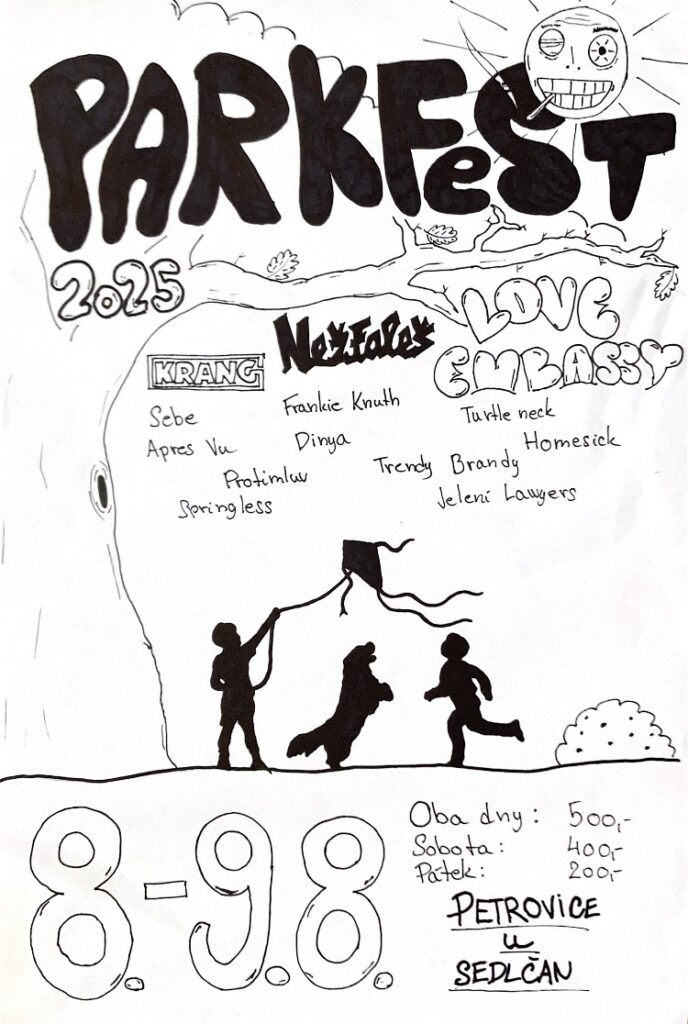 PARKFeST
2025
LOVE
EMBASSY
KRANG
Ne*Fale*
Sebe
Frankie Knuth
Turtle neck
Apres Vu
Dinya
Homesick
Protimluv
Trendy Brandy
Springless
Jelení Lawyers
8.-9.8.
Oba dny: 500,-
Sobota: 400,-
Pátek: 200,-
PETROVICE
u
SEDLČAN